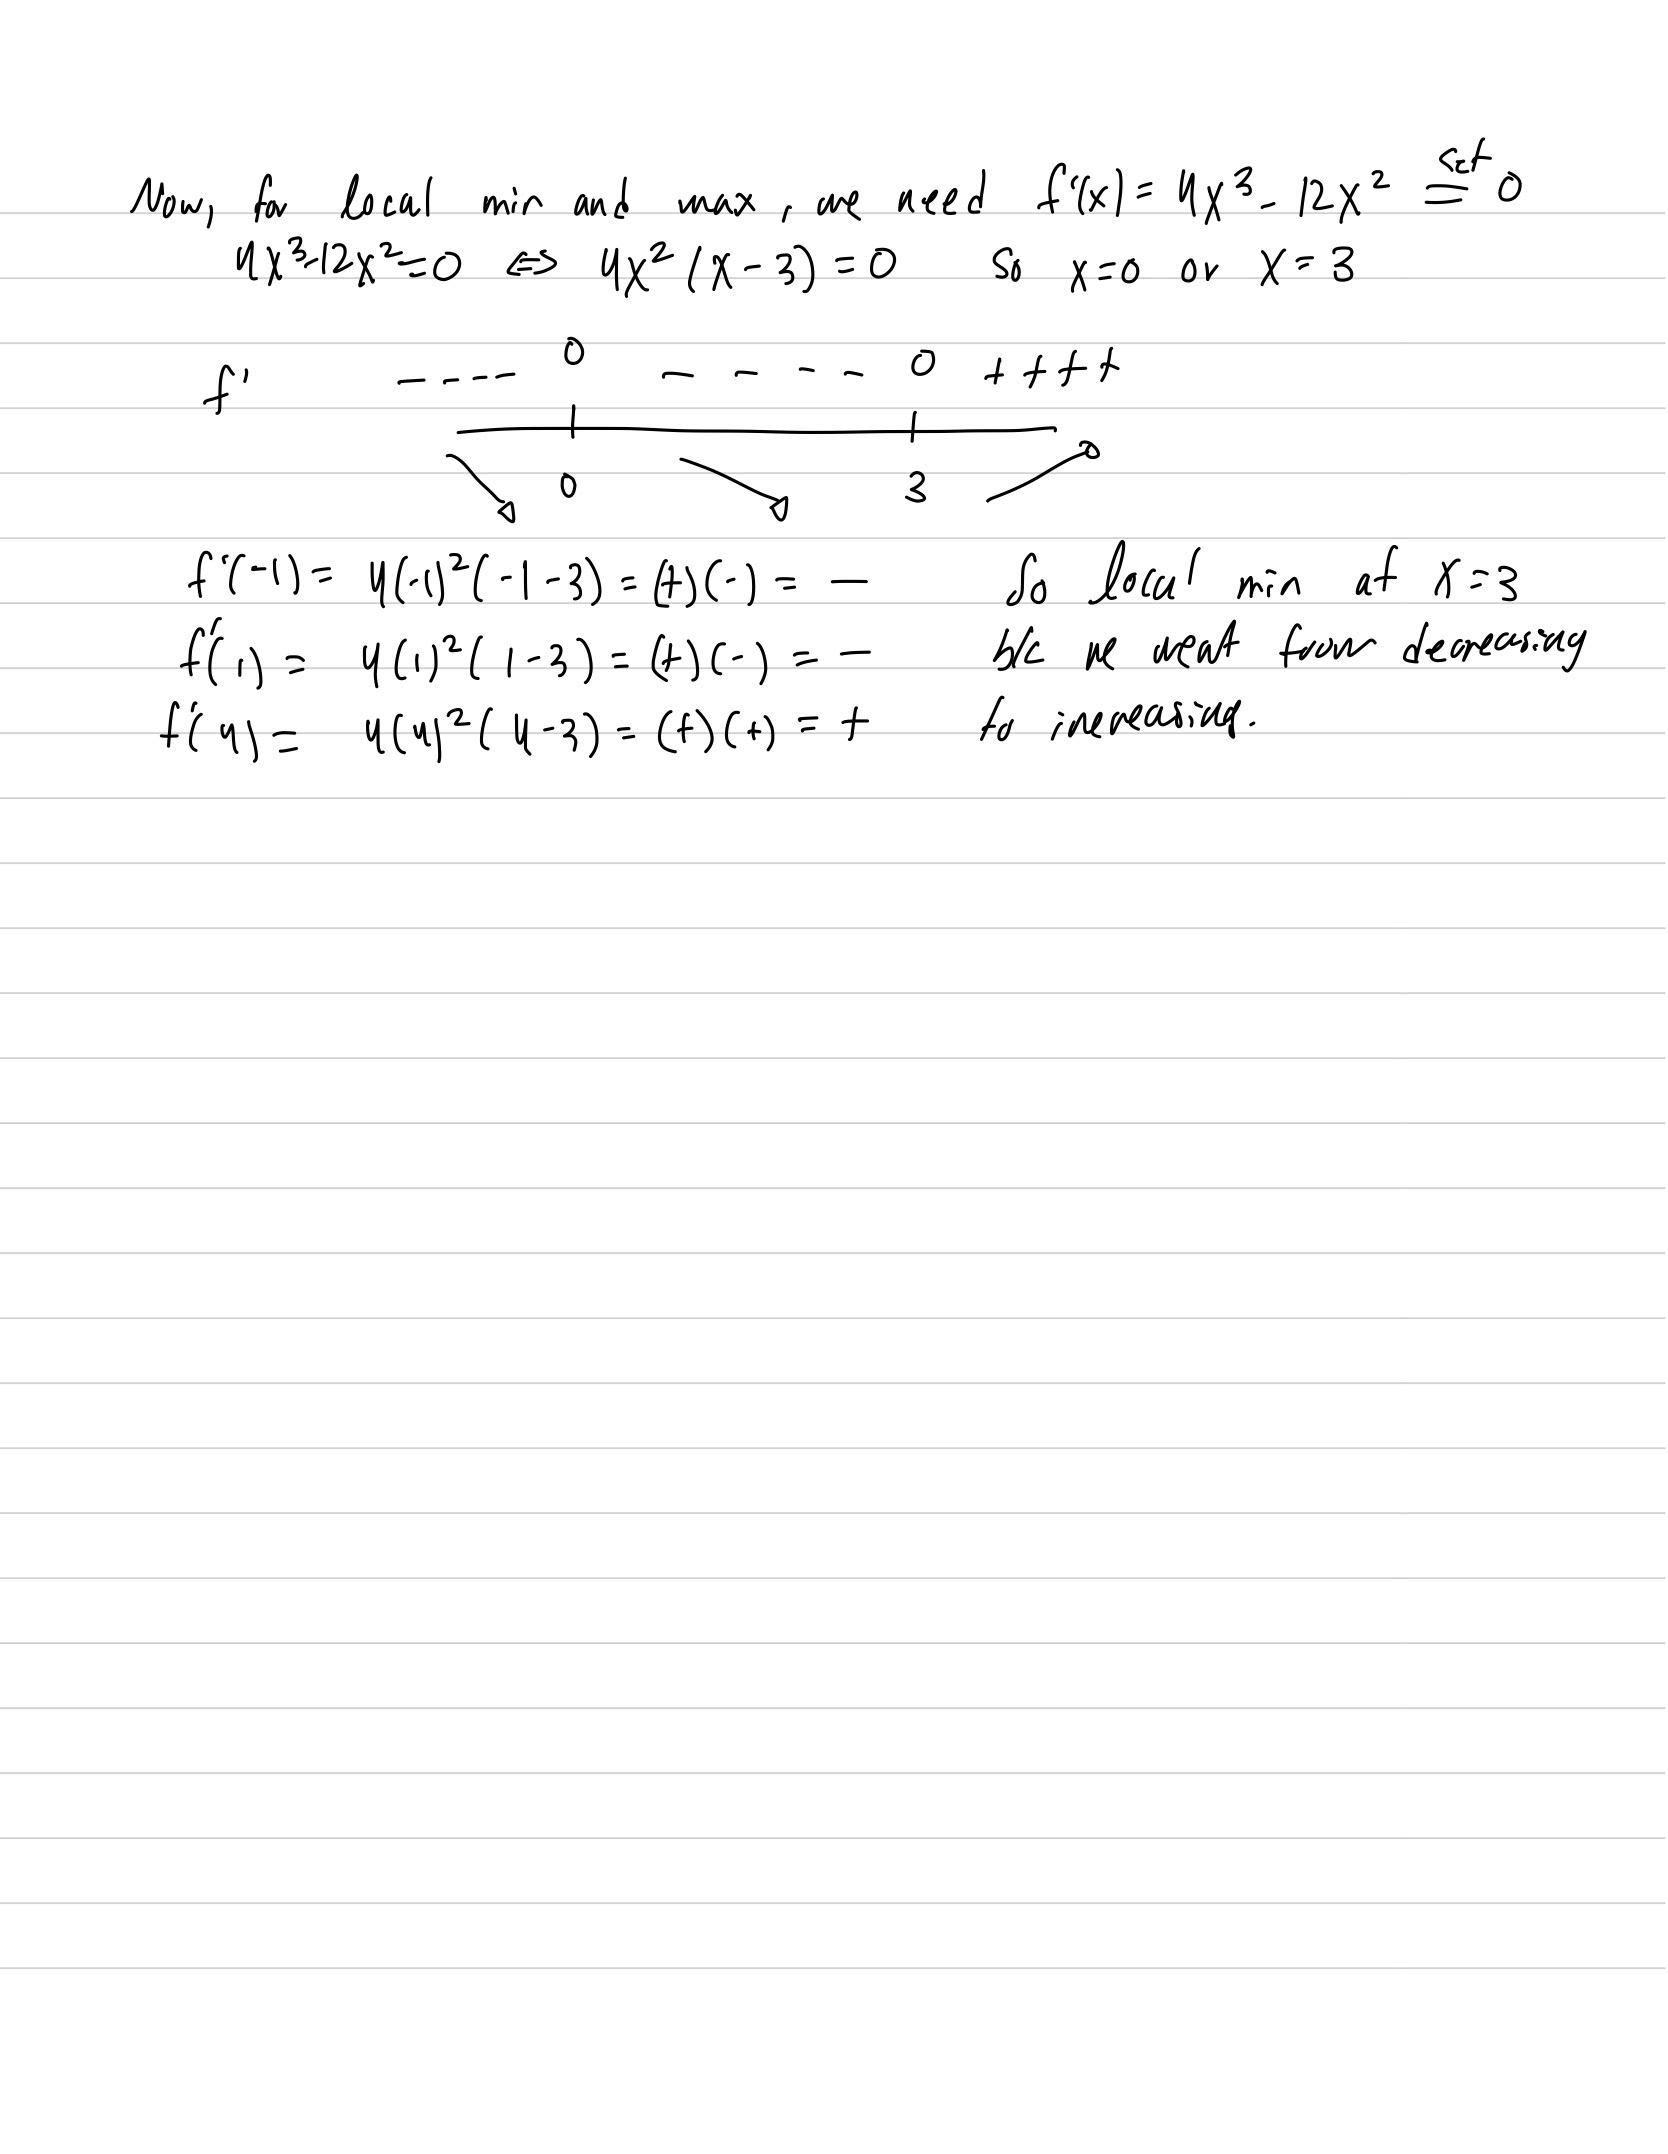 Now, for local min and max, we need f'(x) = 4x³ - 12x² set= 0
4x³-12x²=0 ⇔ 4x²(x-3)=0 so x=0 or x=3
f' ---- 0 - - - - 0 ++++
0 3
f'(-1) = 4(-1)²(-1-3) = (+)(-) = - So local min at x=3
f'(1) = 4(1)²(1-3) = (+)(-) = - b/c we went from decreasing
f'(4) = 4(4)²(4-3) = (+)(+) = + to increasing.